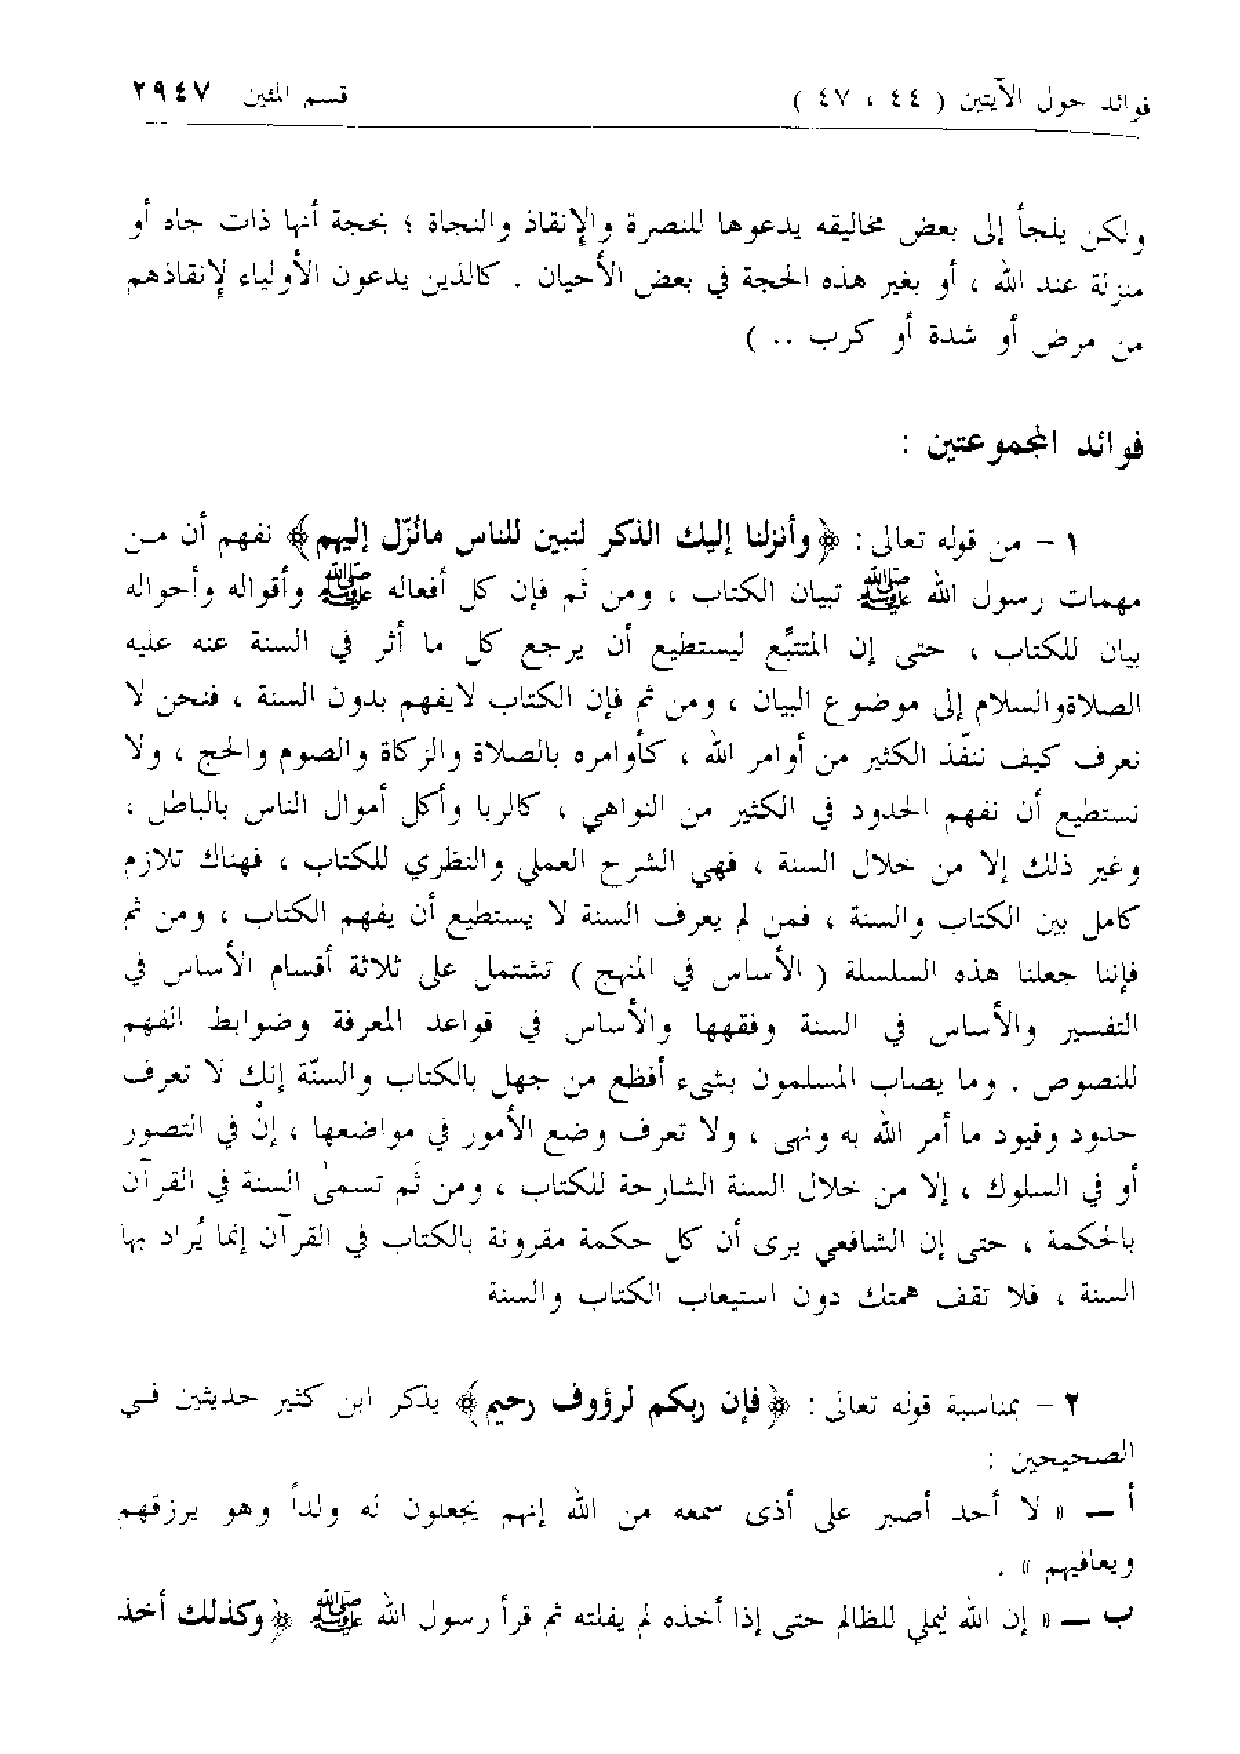 فوائد حول الآيتين ( ٤٤ ، ٤٧ ) قسم المئين ٢٩٤٧
ولكن يلجأ إلى بعض مخاليقه يدعوها للنصرة والإنقاذ والنجاة ؛ بحجة أنها ذات جاه أو
منزلة عند الله ، أو بغير هذه الحجة في بعض الأحيان . كالذين يدعون الأولياء لإنقاذهم
من مرض أو شدة أو كرب .. )
فوائد المجموعتين :
١ - من قوله تعالى : ﴿وأنزلنا إليك الذكر لتبين للناس مانُزّل إليهم﴾ نفهم أن من
مهمات رسول الله ﷺ تبيان الكتاب ، ومن ثَم فإن كل أفعاله ﷺ وأقواله وأحواله
بيان للكتاب ، حتى إن المتتبِّع ليستطيع أن يرجع كل ما أثر في السنة عنه عليه
الصلاةوالسلام إلى موضوع البيان ، ومن ثم فإن الكتاب لايفهم بدون السنة ، فنحن لا
نعرف كيف ننفّذ الكثير من أوامر الله ، كأوامره بالصلاة والزكاة والصوم والحج ، ولا
نستطيع أن نفهم الحدود في الكثير من النواهي ، كالربا وأكل أموال الناس بالباطل ،
وغير ذلك إلا من خلال السنة ، فهي الشرح العملي والنظري للكتاب ، فهناك تلازم
كامل بين الكتاب والسنة ، فمن لم يعرف السنة لا يستطيع أن يفهم الكتاب ، ومن ثم
فإننا جعلنا هذه السلسلة ( الأساس في المنهج ) تشتمل على ثلاثة أقسام الأساس في
التفسير والأساس في السنة وفقهها والأساس في قواعد المعرفة وضوابط الفهم
للنصوص . وما يصاب المسلمون بشىء أفظع من جهل بالكتاب والسنّة إنك لا تعرف
حدود وقيود ما أمر الله به ونهى ، ولا تعرف وضع الأمور في مواضعها ، إنْ في التصور
أو في السلوك ، إلا من خلال السنة الشارحة للكتاب ، ومن ثَم تسمى السنة في القرآن
بالحكمة ، حتى إن الشافعي يرى أن كل حكمة مقرونة بالكتاب في القرآن إنما يُراد بها
السنة ، فلا تقف همتك دون استيعاب الكتاب والسنة
٢ - بمناسبة قوله تعالى : ﴿فإن ربكم لرؤوف رحيم﴾ يذكر ابن كثير حديثين في
الصحيحين :
أ — « لا أحد أصبر على أذى سمعه من الله إنهم يجعلون له ولداً وهو يرزقهم
ويعافيهم » .
ب — « إن الله ليملي للظالم حتى إذا أخذه لم يفلته ثم قرأ رسول الله ﷺ ﴿وكذلك أخذ